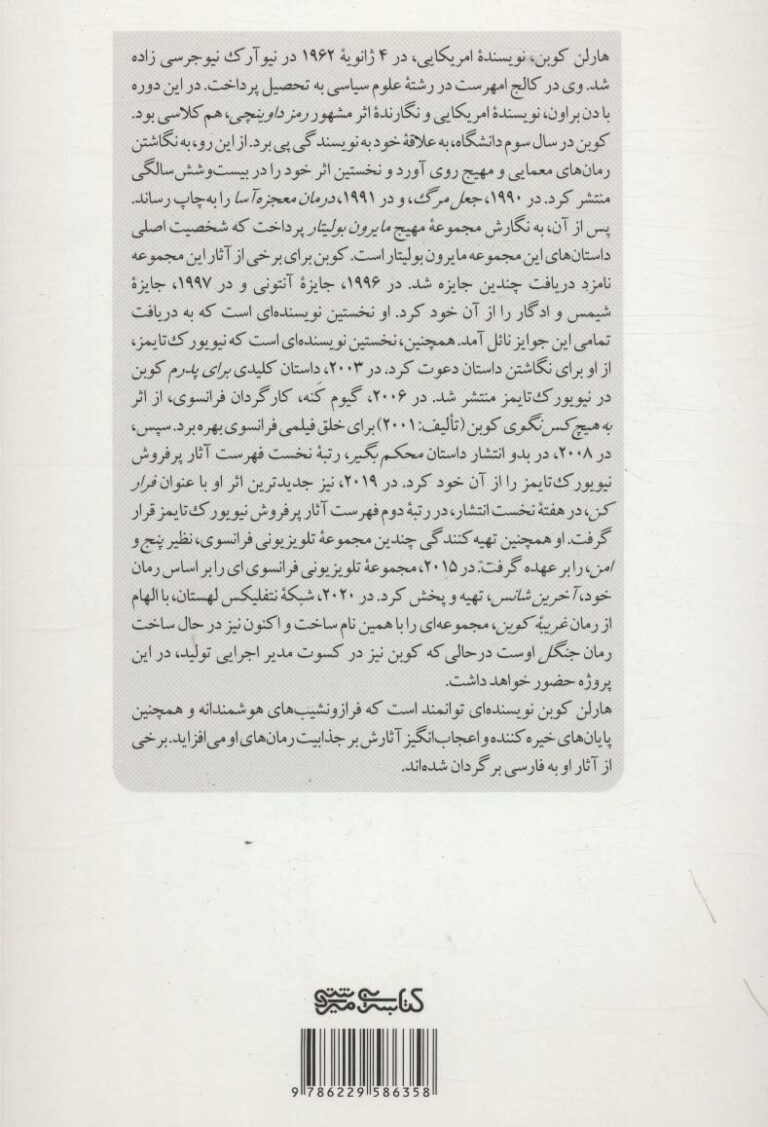 هارلن کوبن، نویسندهٔ امریکایی، در ۴ ژانویهٔ ۱۹۶۲ در نیوآرک نیوجرسی زاده
شد. وی در کالج امهرست در رشتهٔ علوم سیاسی به تحصیل پرداخت. در این دوره
با دن براون، نویسندهٔ امریکایی و نگارندهٔ اثر مشهور رمز داوینچی، هم‌کلاسی بود.
کوبن در سال سوم دانشگاه، به علاقهٔ خود به نویسندگی پی برد. از این رو، به نگاشتن
رمان‌های معمایی و مهیج روی آورد و نخستین اثر خود را در بیست‌وشش‌سالگی
منتشر کرد. در ۱۹۹۰، جعل مرگ، و در ۱۹۹۱، درمان معجزه‌آسا را به‌چاپ رساند.
پس از آن، به نگارش مجموعهٔ مهیج مایرون بولیتار پرداخت که شخصیت اصلی
داستان‌های این مجموعه مایرون بولیتار است. کوبن برای برخی از آثار این مجموعه
نامزد دریافت چندین جایزه شد. در ۱۹۹۶، جایزهٔ آنتونی و در ۱۹۹۷، جایزهٔ
شیمس و ادگار را از آن خود کرد. او نخستین نویسنده‌ای است که به دریافت
تمامی این جوایز نائل آمد. همچنین، نخستین نویسنده‌ای است که نیویورک‌تایمز،
از او برای نگاشتن داستان دعوت کرد. در ۲۰۰۳، داستان کلیدی برای پدرم کوبن
در نیویورک‌تایمز منتشر شد. در ۲۰۰۶، گیوم کَنه، کارگردان فرانسوی، از اثر
به هیچ‌کس نگوی کوبن (تألیف: ۲۰۰۱) برای خلق فیلمی فرانسوی بهره برد. سپس،
در ۲۰۰۸، در بدو انتشار داستان محکم بگیر، رتبهٔ نخست فهرست آثار پرفروش
نیویورک‌تایمز را از آن خود کرد. در ۲۰۱۹، نیز جدیدترین اثر او با عنوان فرار
کن، در هفتهٔ نخست انتشار، در رتبهٔ دوم فهرست آثار پرفروش نیویورک‌تایمز قرار
گرفت. او همچنین تهیه‌کنندگی چندین مجموعهٔ تلویزیونی فرانسوی، نظیر پنج و
امن، را بر عهده گرفت. در ۲۰۱۵، مجموعهٔ تلویزیونی فرانسوی ای را بر اساس رمان
خود، آخرین شانس، تهیه و پخش کرد. در ۲۰۲۰، شبکهٔ نتفلیکس لهستان، با الهام
از رمان غریبهٔ کوبن، مجموعه‌ای را با همین نام ساخت و اکنون نیز در حال ساخت
رمان جنگل اوست درحالی‌که کوبن نیز در کسوت مدیر اجرایی تولید، در این
پروژه حضور خواهد داشت.
هارلن کوبن نویسنده‌ای توانمند است که فرازونشیب‌های هوشمندانه و همچنین
پایان‌های خیره‌کننده و اعجاب‌انگیز آثارش بر جذابیت رمان‌های او می‌افزاید. برخی
از آثار او به فارسی برگردان شده‌اند.
کتابسرای میردشتی
9 786229 586358